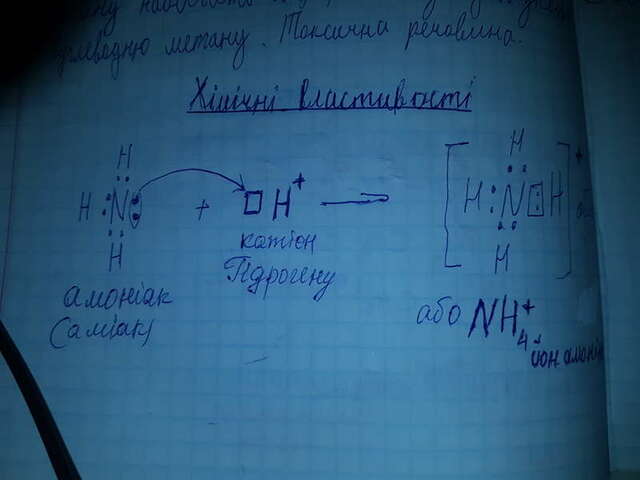 углеводню метану. Токсична речовина.
Хімічні властивості
H H
H : N : + □ H⁺ → [ H : N : H ]⁺
H H
катіон
Гідрогену
амоніак
(аміак)
або NH₄⁺
йон амонію